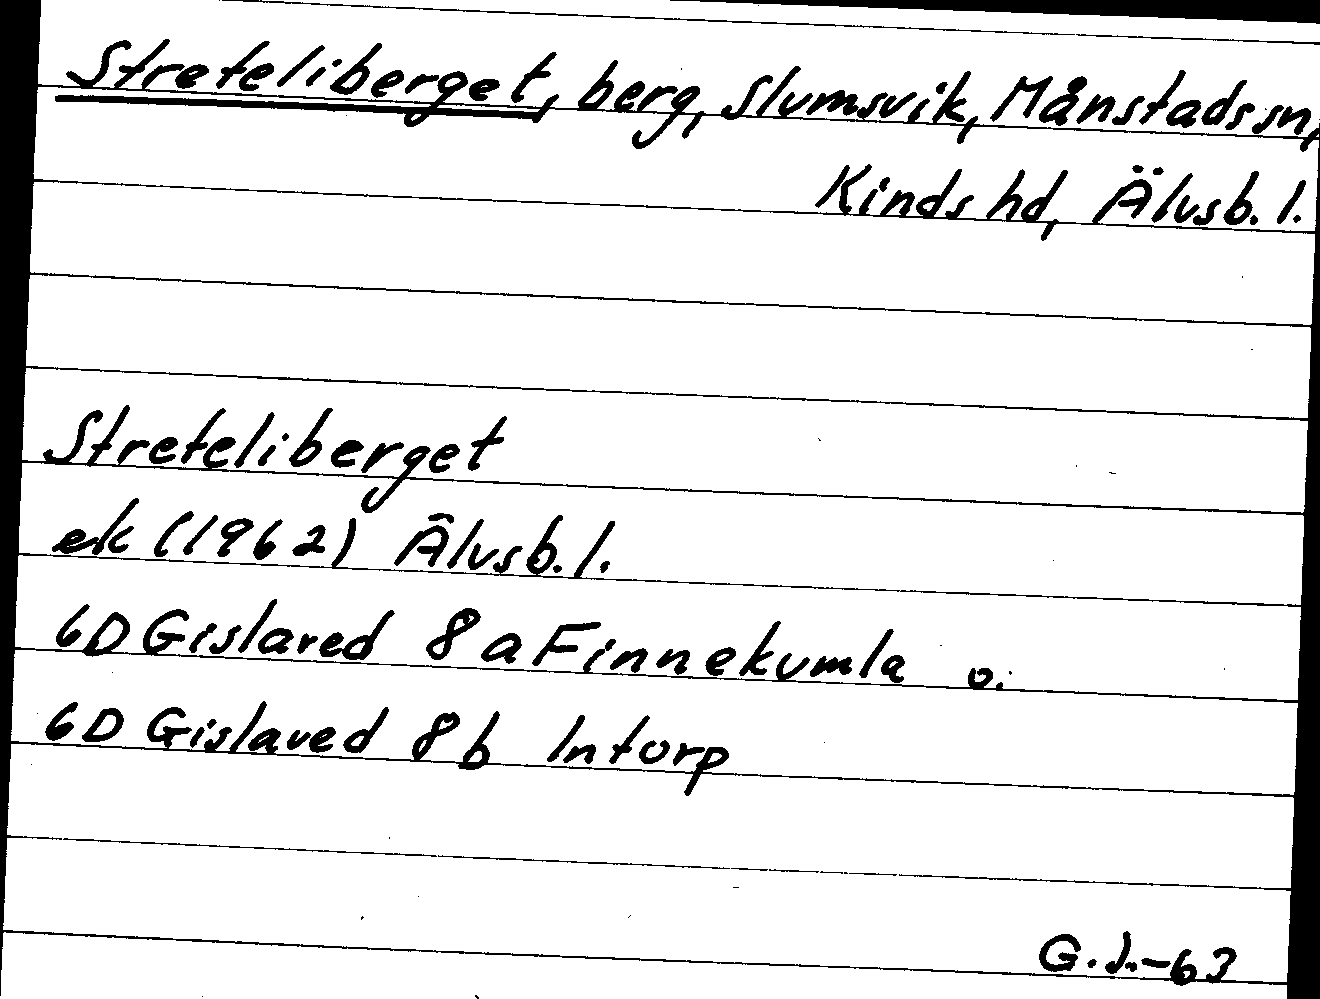 Streteliberget, berg, Slumsvik, Månstads sn,
Kinds hd, Älvsb. l.
Streteliberget
ek (1962) Älvsb. l.
6D Gislaved 8 a Finnekumla o.
6D Gislaved 8 b Intorp
G.J.-63